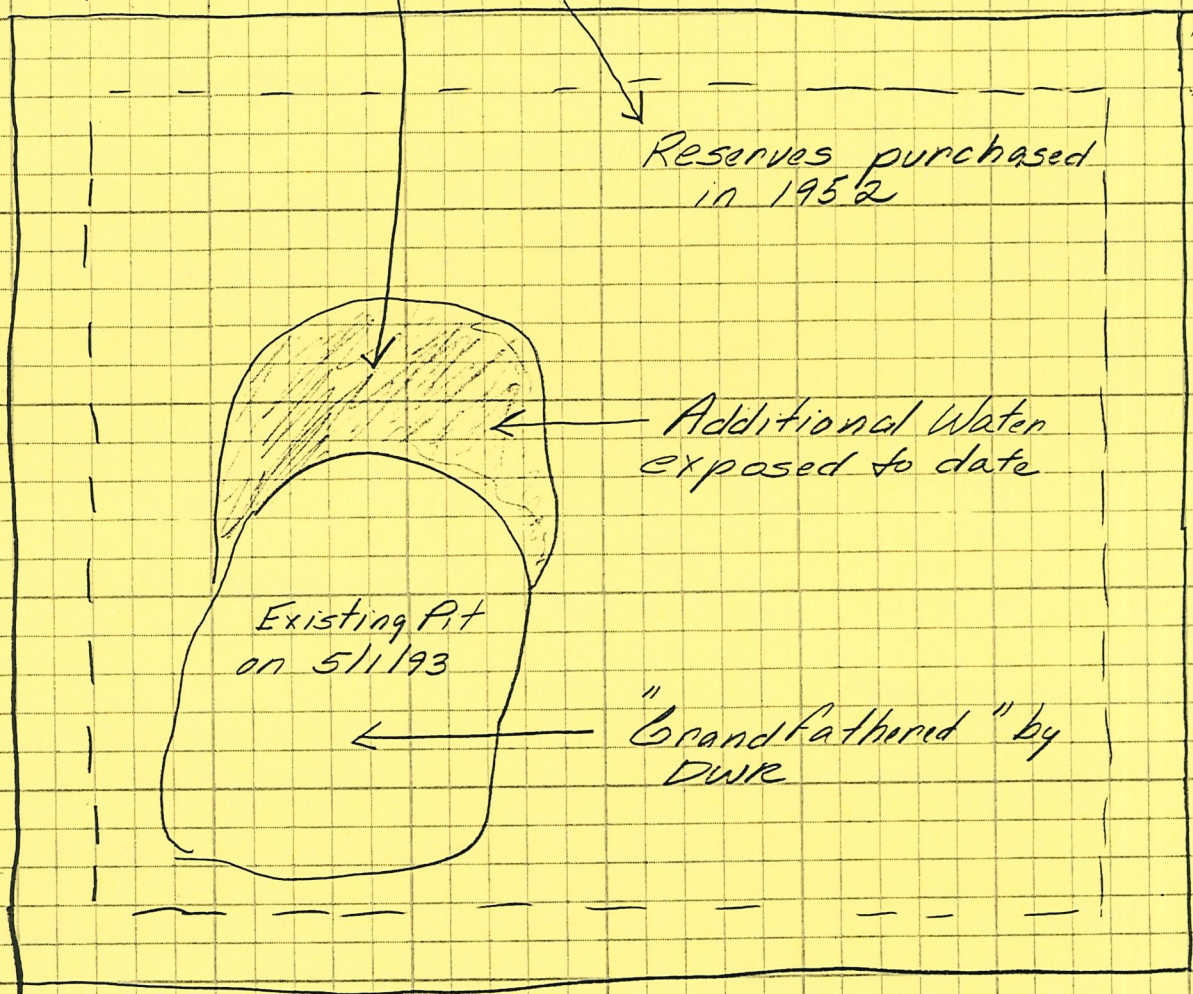 Reserves purchased
in 1952
Additional Water
exposed to date
Existing Pit
on 5/1/93
"Grandfathered" by
DWR